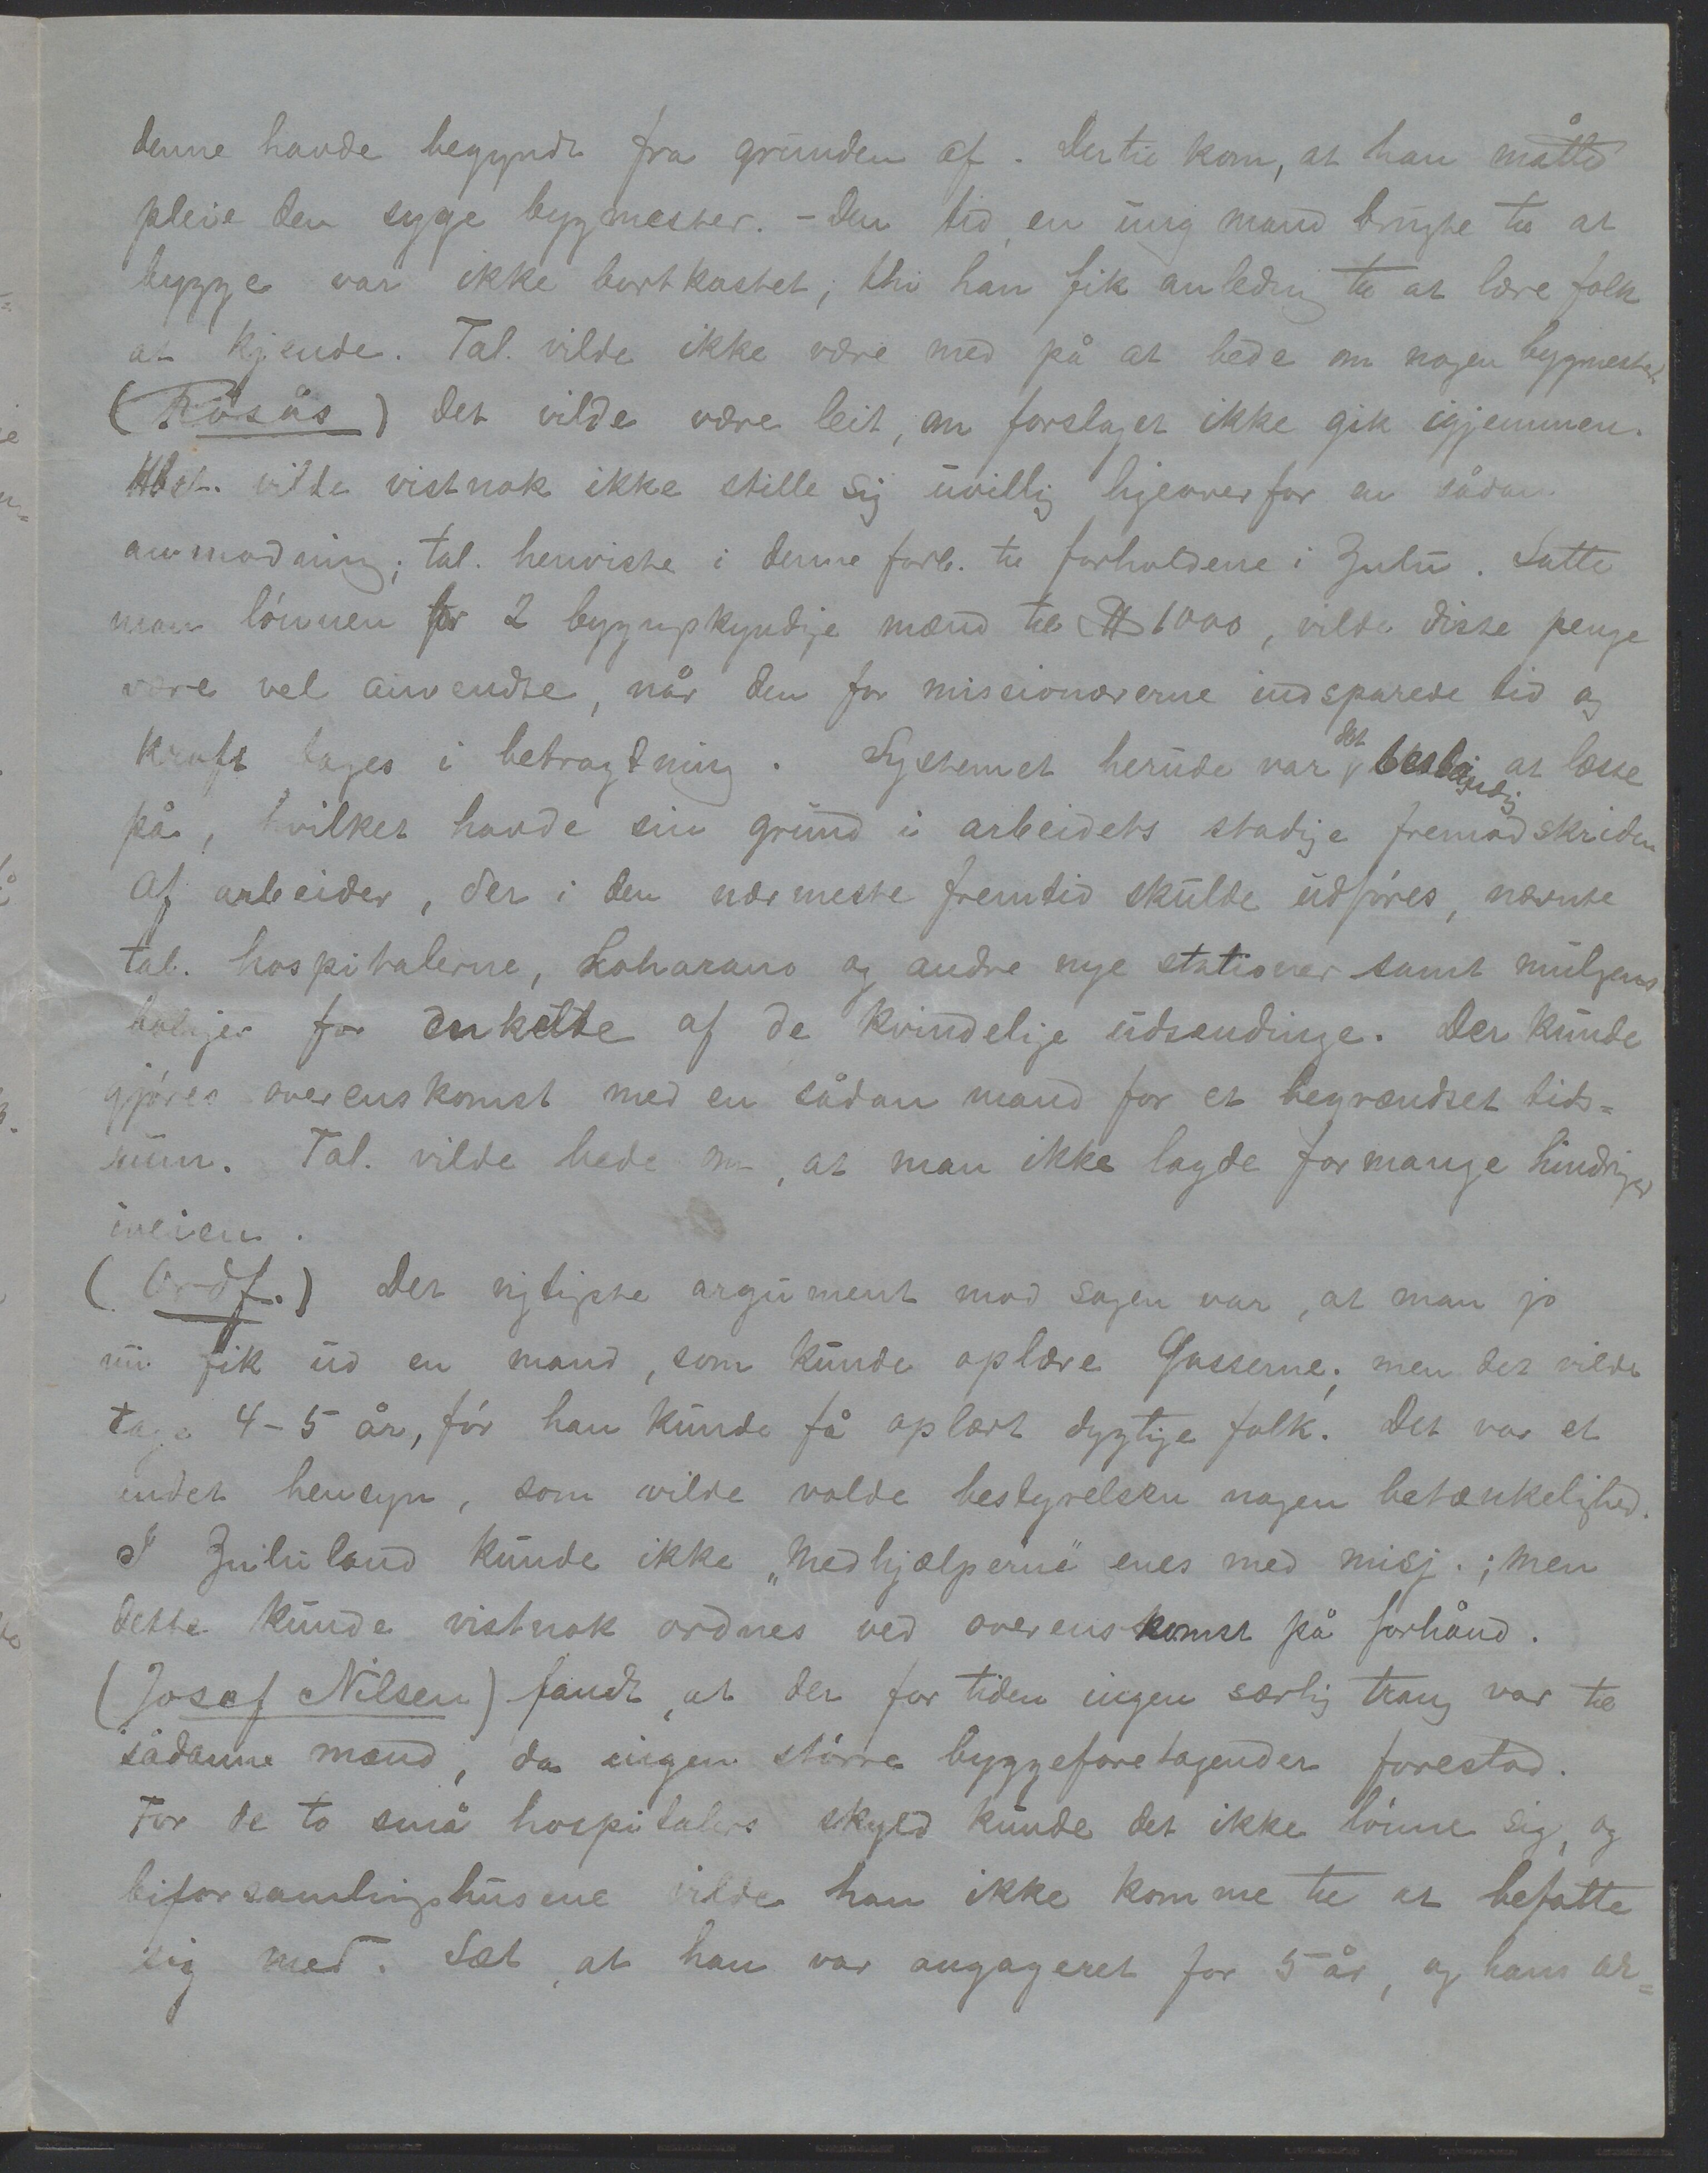 denne havde begyndt fra grunden af. Dertil kom, at han måtte
pleie den syge bygmester. – Den tid en ung mand brugte til at
bygge var ikke bortkastet, thi han fik anledning til at lære folk
at kjende. Tal. vilde ikke være med på at bede om nogen bygmester
(Røsås) Det vilde være leit, om forslaget ikke gik igjennem.
Hbst. vilde vistnok ikke stille sig uvillig ligeoverfor en sådan
anmodning; tal. henviste i denne forb. til forholdene i Zulu. Satte
man lønnen for 2 bygnpskyndige mænd til 1000, vilde disse penge
være vel anvendte, når den for missionærerne indsparede tid og
kraft tages i betragtning. Systemet herude var det bestandig at læsse
på, hvilket havde sin grund i arbeidets stadige fremadskriden
Af arbeider, der i den nærmeste fremtid skulde udføres, nævnte
tal. hospitalerne, Loharano og andre nye stationer samt muligens
boliger for enkelte af de kvindelige udsendinge. Der kunde
gjøres overenskomst med en sådan mand for et begrændset tids=
rum. Tal. vilde bede om, at man ikke lagde formange hindringer
iveien.
(Ordf.) Det vigtigste argument mod sagen var, at man jo
nu fik ud en mand, som kunde oplære Gasserne; men det vilde
tage 4–5 år, før han kunde få oplært dygtige folk. Det var et
andet hensyn, som vilde volde bestyrelsen nogen betænkelighed.
I Zululand kunde ikke „Medhjælperne" enes med misj.; men
dette kunde vistnok ordnes ved overenskomst på forhånd.
(Josef Nilsen) fandt, at der for tiden ingen særlig trang var til
sådanne mænd, da ingen større byggeforetagender forestod.
For de to små hospitalers skyld kunde det ikke lønne sig, og
biforsamlingshusene vilde han ikke komme til at befatte
sig med. Sæt, at han var angageret for 5 år, og hans ar=